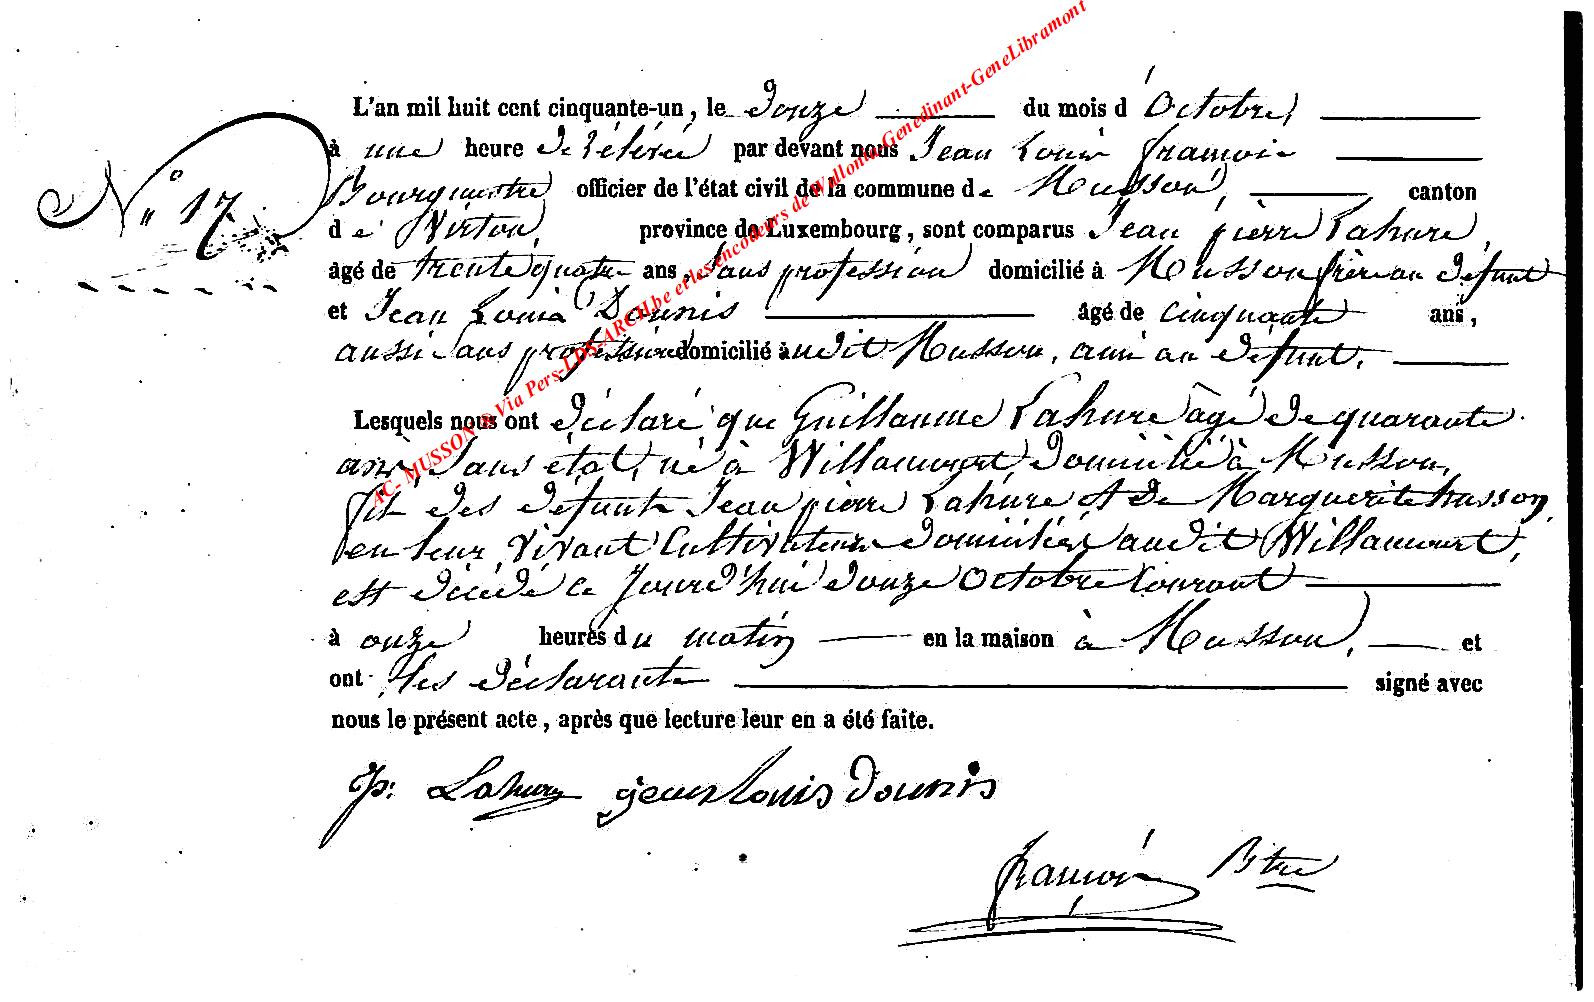 N° 17
L'an mil huit cent cinquante-un, le douze du mois d'Octobre,
à une heure de rélévée par devant nous Jean Louis françois
Bourguestre officier de l'état civil de la commune de Musson, canton
de Virton, province de Luxembourg, sont comparus Jean pierre Lahure,
âgé de trente quatre ans, sans profession domicilié à Musson frère au défunt
et Jean Louis Dounis âgé de cinquante ans,
aussi sans profession domicilié audit Musson, ami au défunt.
Lesquels nous ont déclaré que Guillaume Lahure âgé de quarante
ans, sans état, né à Willancourt domicilié à Musson,
fils des défunts Jean pierre Lahure et de Marguerite husson,
en leur vivant Cultivateurs domiciliés audit Willancourt,
est décédé ce jourd'hui douze Octobre Courant
à onze heures du matin en la maison à Musson, et
ont les déclarants signé avec
nous le présent acte, après que lecture leur en a été faite.
Jp: Lahure jean louis Dounis
françois Btre
AC- MUSSON ® Via Pers-LDS-ARCH.be et les encodeurs de Wallonia-Genedinant-GeneLibramont